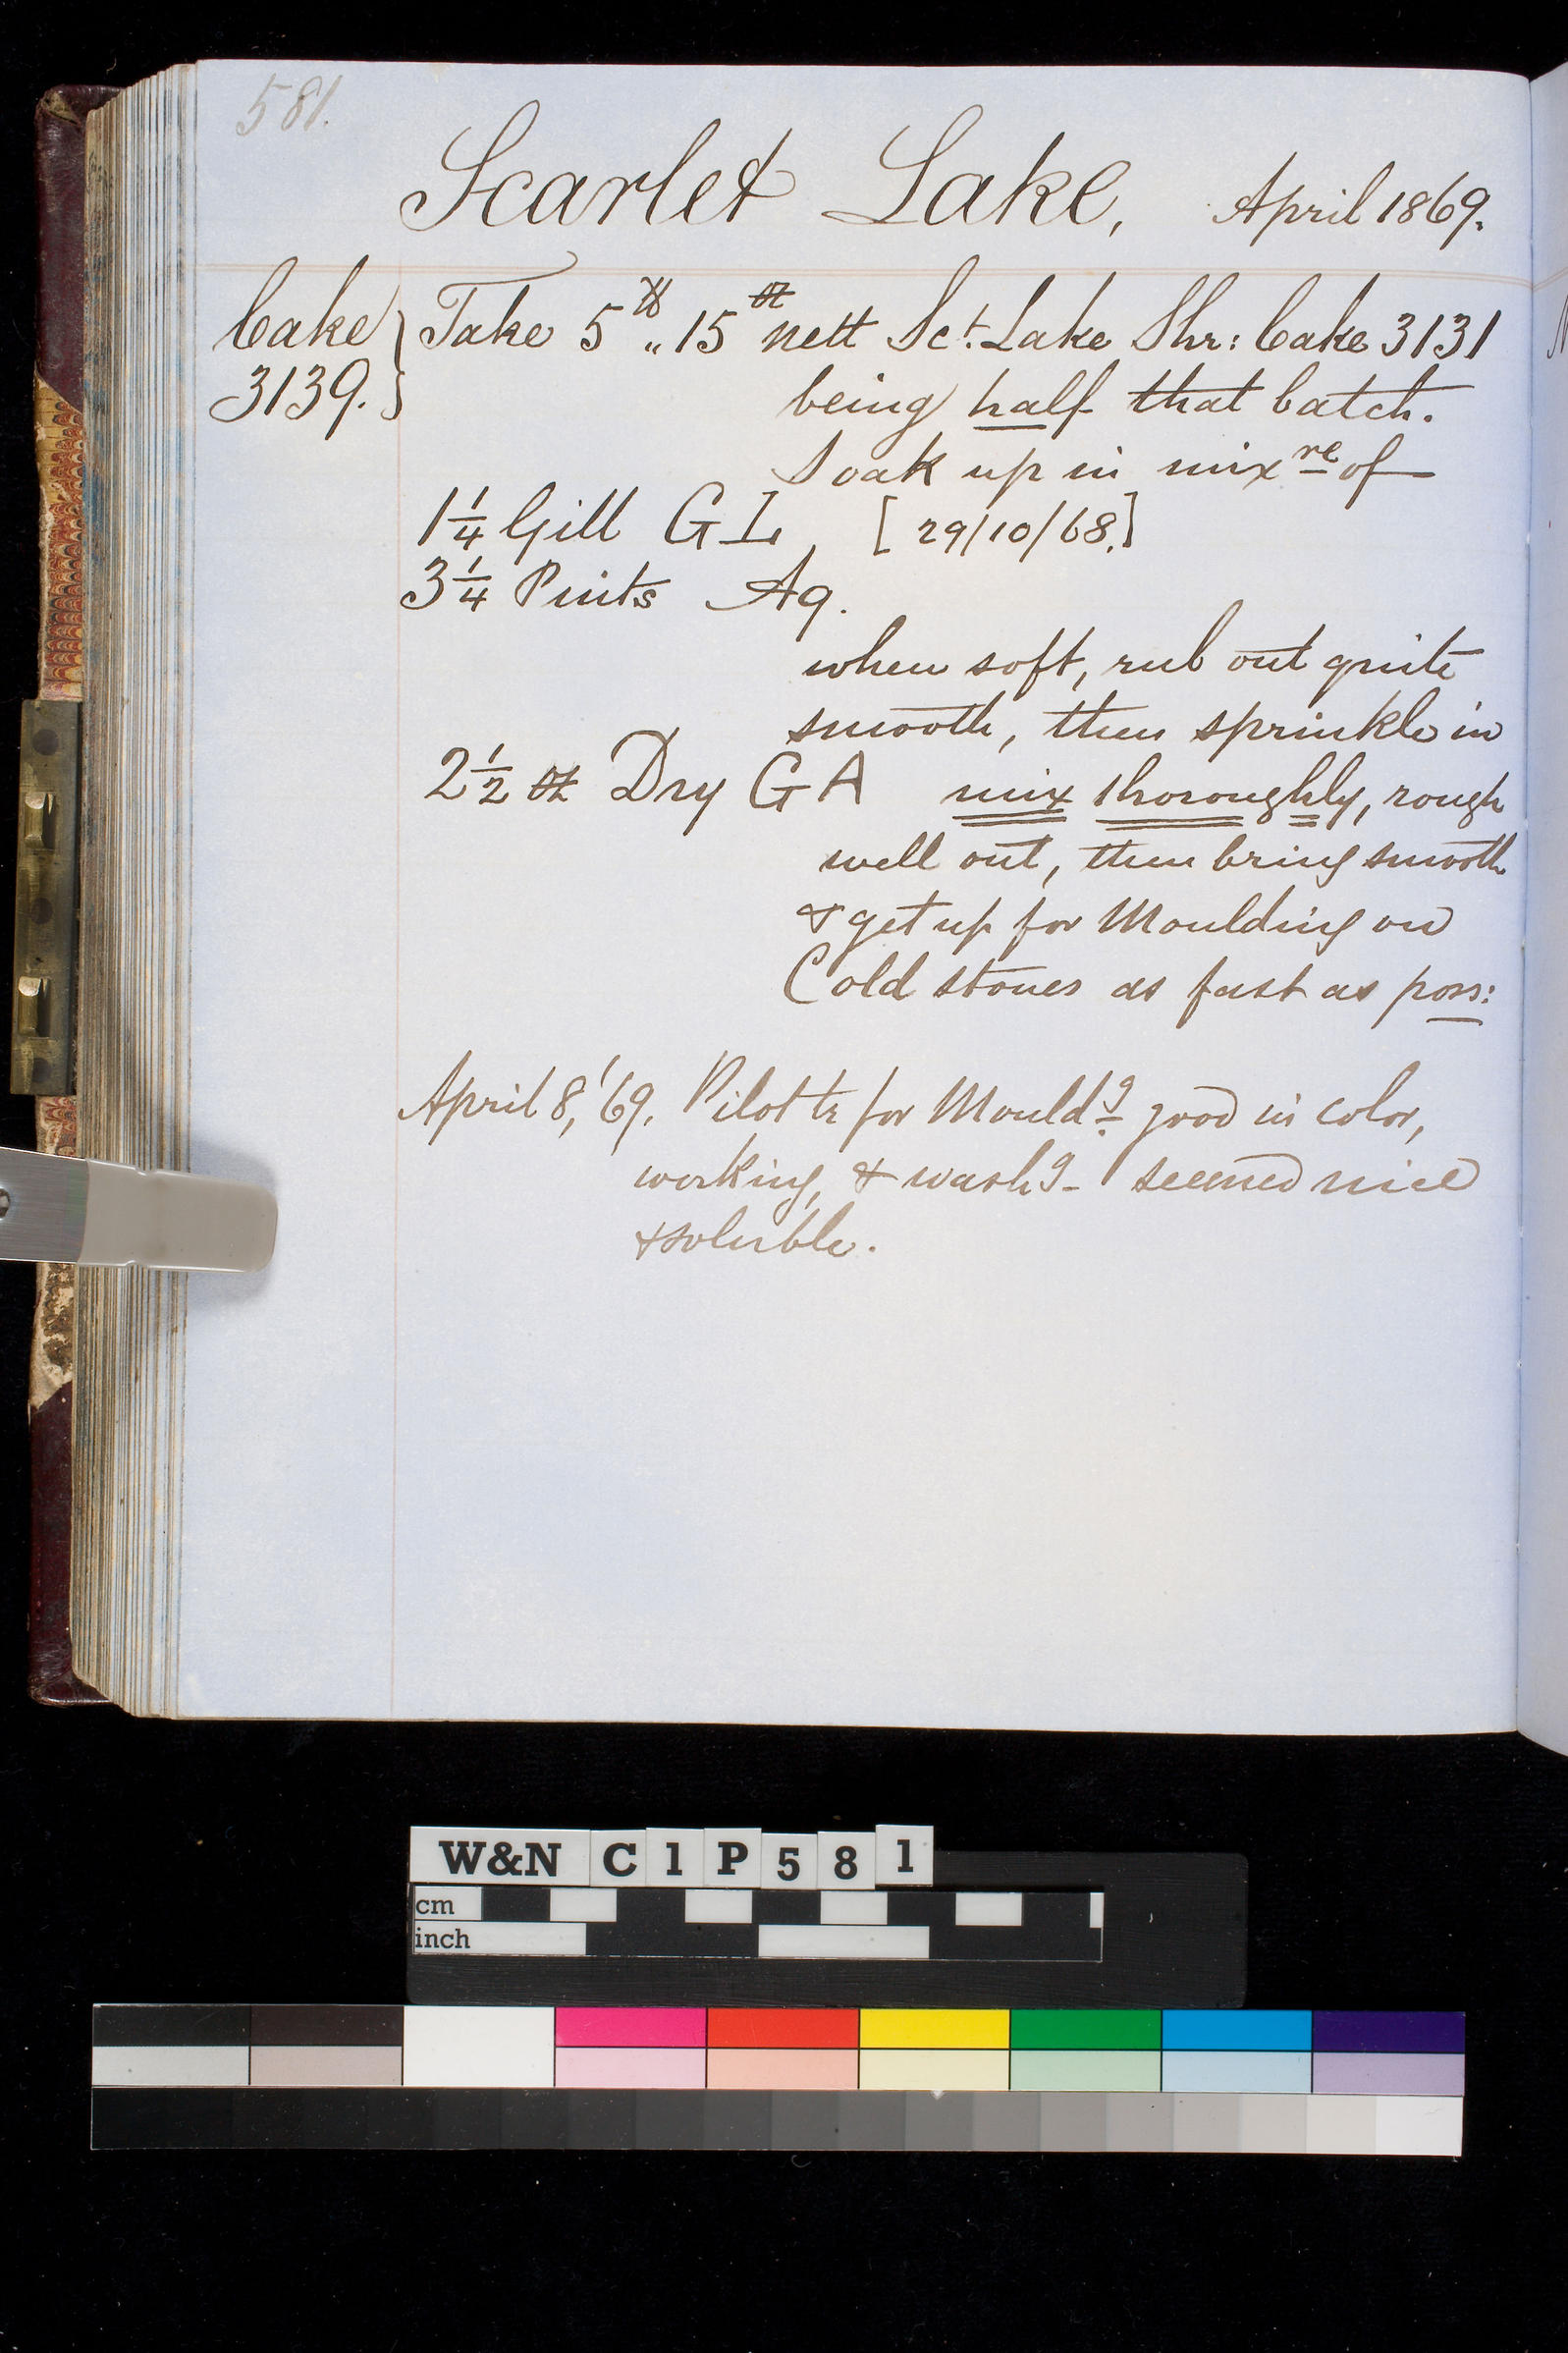 581.
Scarlet Lake, April 1869.
Cake 3139. } Take 5 lb „ 15 oz nett Sct. Lake Shr: Cake 3131
being half that batch.
Soak up in mixre of
1 1/4 Gill G L, [29/10/68.]
3 1/4 Pints Aq.
when soft, rub out quite
smooth, then sprinkle in
2 1/2 oz Dry G A mix thoroughly, rough
well out, then bring smooth
& get up for Moulding on
Cold stones as fast as poss:
April 8, '69. Pilot tr for Mouldg good in color,
working, & washg - seemed nice
& soluble.
W&N C1P581
cm
inch